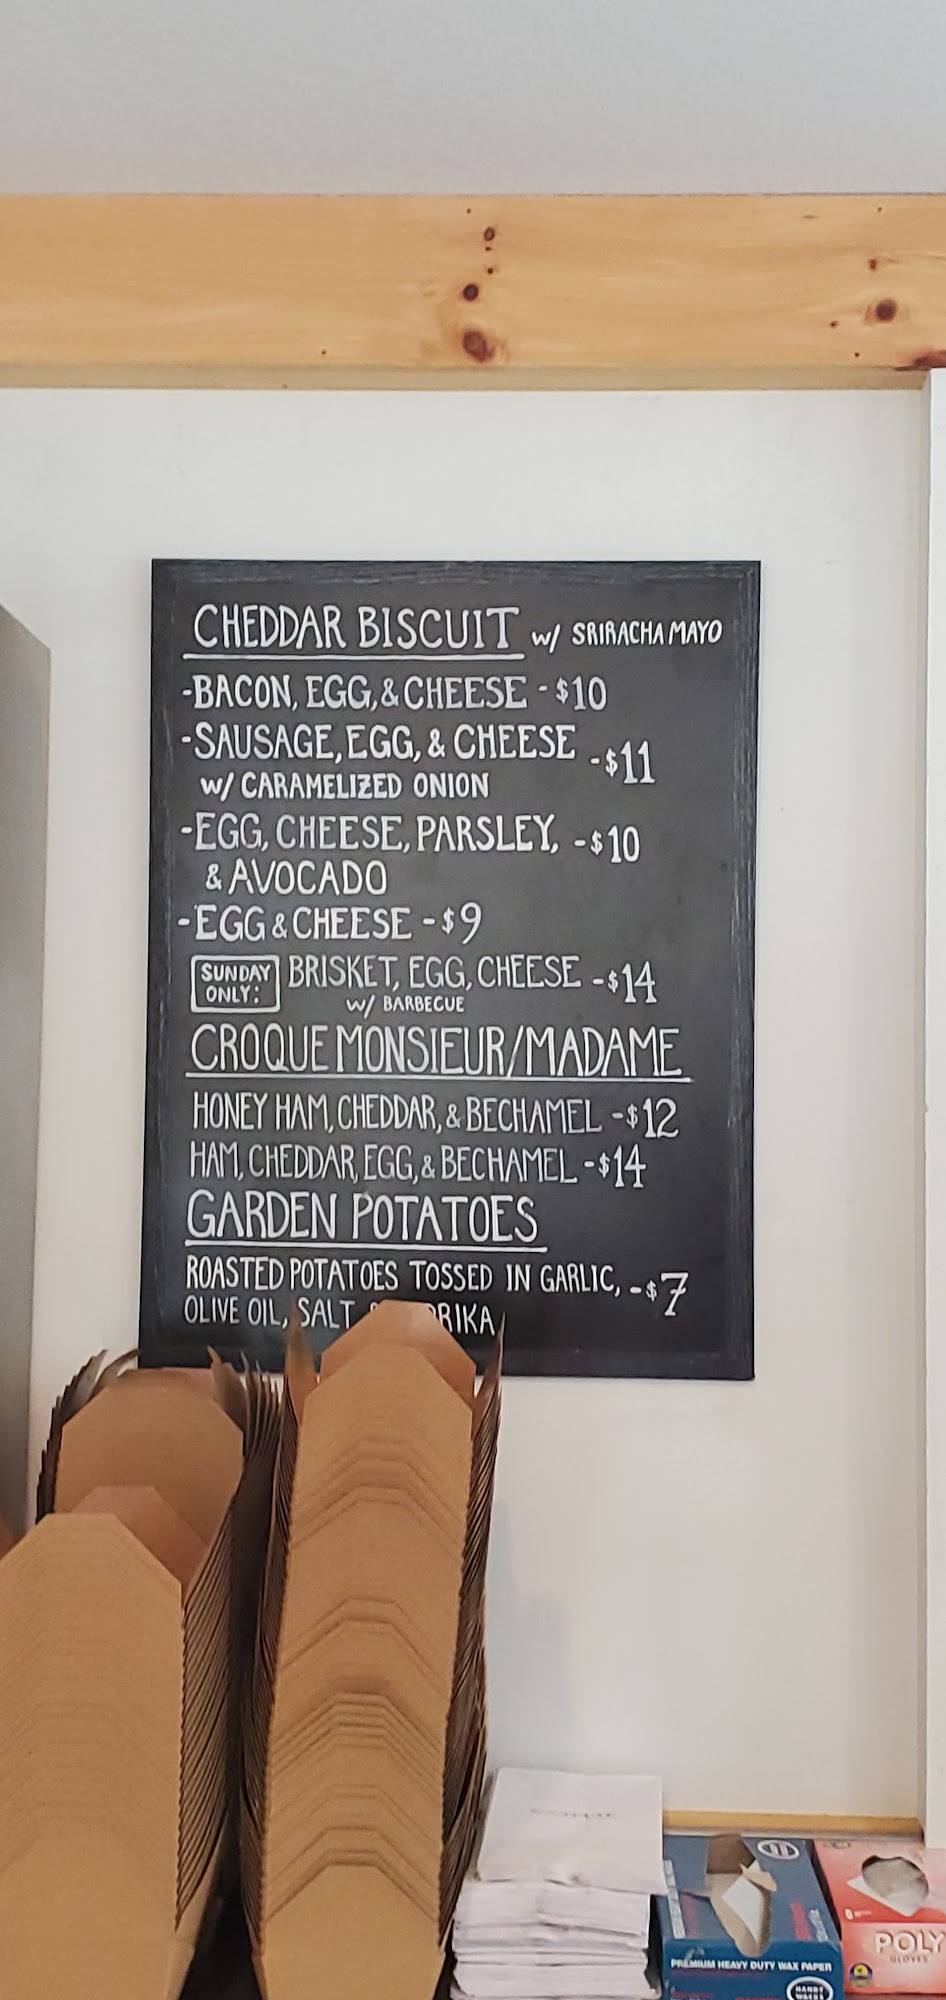 CHEDDAR BISCUIT w/ SRIRACHA MAYO
-BACON, EGG, & CHEESE - $10
-SAUSAGE, EGG, & CHEESE - $11
w/ CARAMELIZED ONION
-EGG, CHEESE, PARSLEY, - $10
& AVOCADO
-EGG & CHEESE - $9
SUNDAY ONLY: BRISKET, EGG, CHEESE - $14
w/ BARBECUE
CROQUE MONSIEUR/MADAME
HONEY HAM, CHEDDAR, & BECHAMEL - $12
HAM, CHEDDAR, EGG, & BECHAMEL - $14
GARDEN POTATOES
ROASTED POTATOES TOSSED IN GARLIC, - $7
OLIVE OIL, SALT RIKA
PREMIUM HEAVY DUTY WAX PAPER
HANDY WACKS
POLY
GLOVES